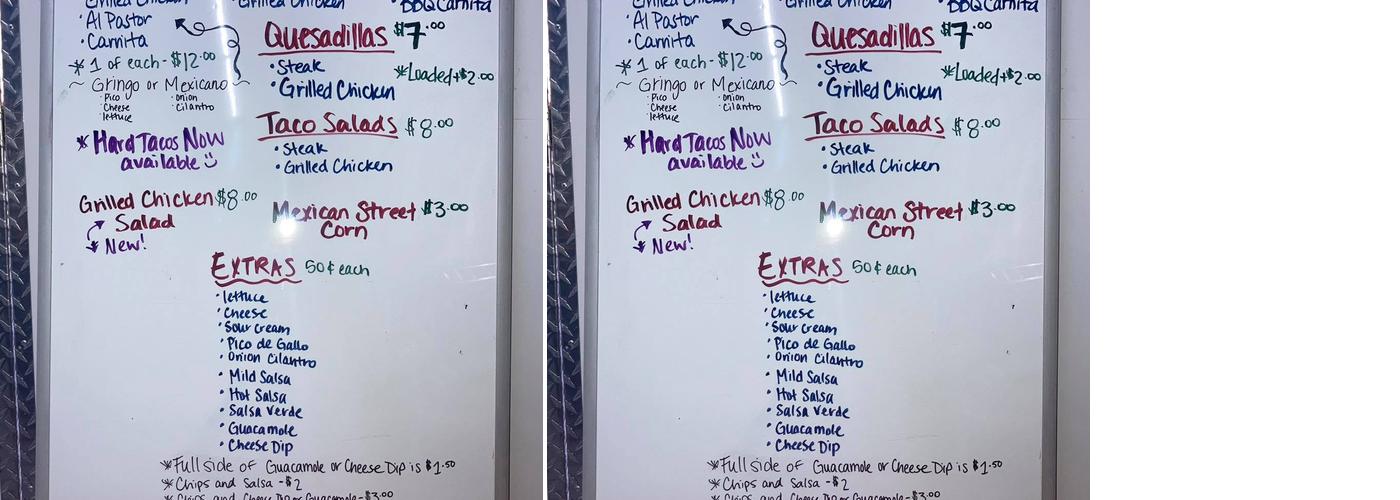 Grilled Chicken
• Al Pastor
• Carnita
* 1 of each - $12.00
~ Gringo or Mexicano ~
• Pico
• Cheese
• lettuce
• Onion
• Cilantro
* Hard Tacos Now
available
Grilled Chicken $8.00
Salad
* New!
• Grilled Chicken
• BBQ Carnita
Quesadillas $7.00
• Steak
• Grilled Chicken
* Loaded + $2.00
Taco Salads $8.00
• Steak
• Grilled Chicken
Mexican Street $3.00
Corn
EXTRAS 50¢ each
• lettuce
• Cheese
• Sour Cream
• Pico de Gallo
• Onion Cilantro
• Mild Salsa
• Hot Salsa
• Salsa Verde
• Guacamole
• Cheese Dip
* Full side of Guacamole or Cheese Dip is $1.50
* Chips and Salsa - $2
* Chips and Cheese Dip or Guacamole - $3.00
Grilled Chicken
• Al Pastor
• Carnita
* 1 of each - $12.00
~ Gringo or Mexicano ~
• Pico
• Cheese
• lettuce
• Onion
• Cilantro
* Hard Tacos Now
available
Grilled Chicken $8.00
Salad
* New!
• Grilled Chicken
• BBQ Carnita
Quesadillas $7.00
• Steak
• Grilled Chicken
* Loaded + $2.00
Taco Salads $8.00
• Steak
• Grilled Chicken
Mexican Street $3.00
Corn
EXTRAS 50¢ each
• lettuce
• Cheese
• Sour Cream
• Pico de Gallo
• Onion Cilantro
• Mild Salsa
• Hot Salsa
• Salsa Verde
• Guacamole
• Cheese Dip
* Full side of Guacamole or Cheese Dip is $1.50
* Chips and Salsa - $2
* Chips and Cheese Dip or Guacamole - $3.00